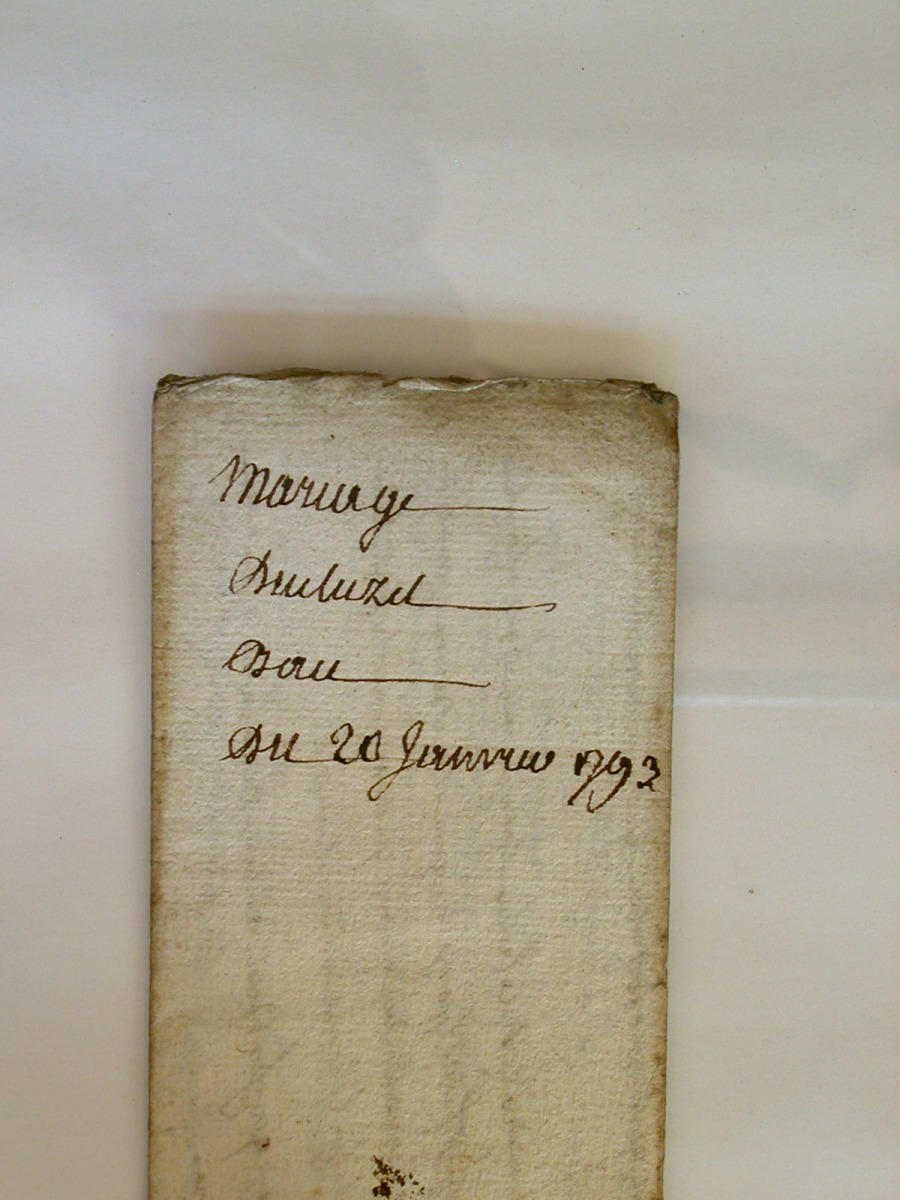 Mariage
Duluzel
Dau
Du 20 Janvier 1793